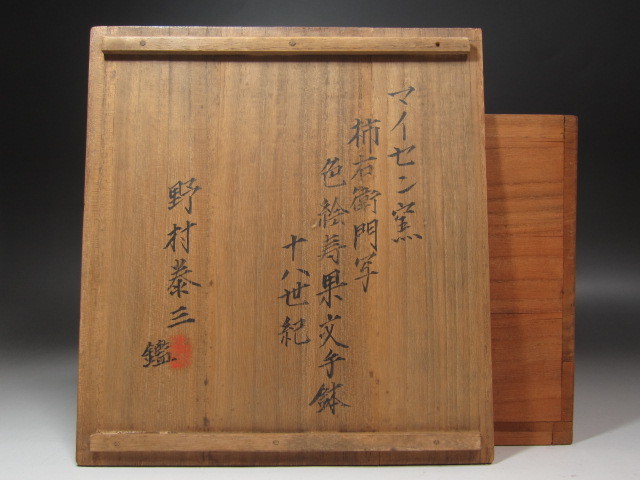 マイセン窯
柿右衛門写
色絵寿果文手鉢
十八世紀
野村泰三
鑑